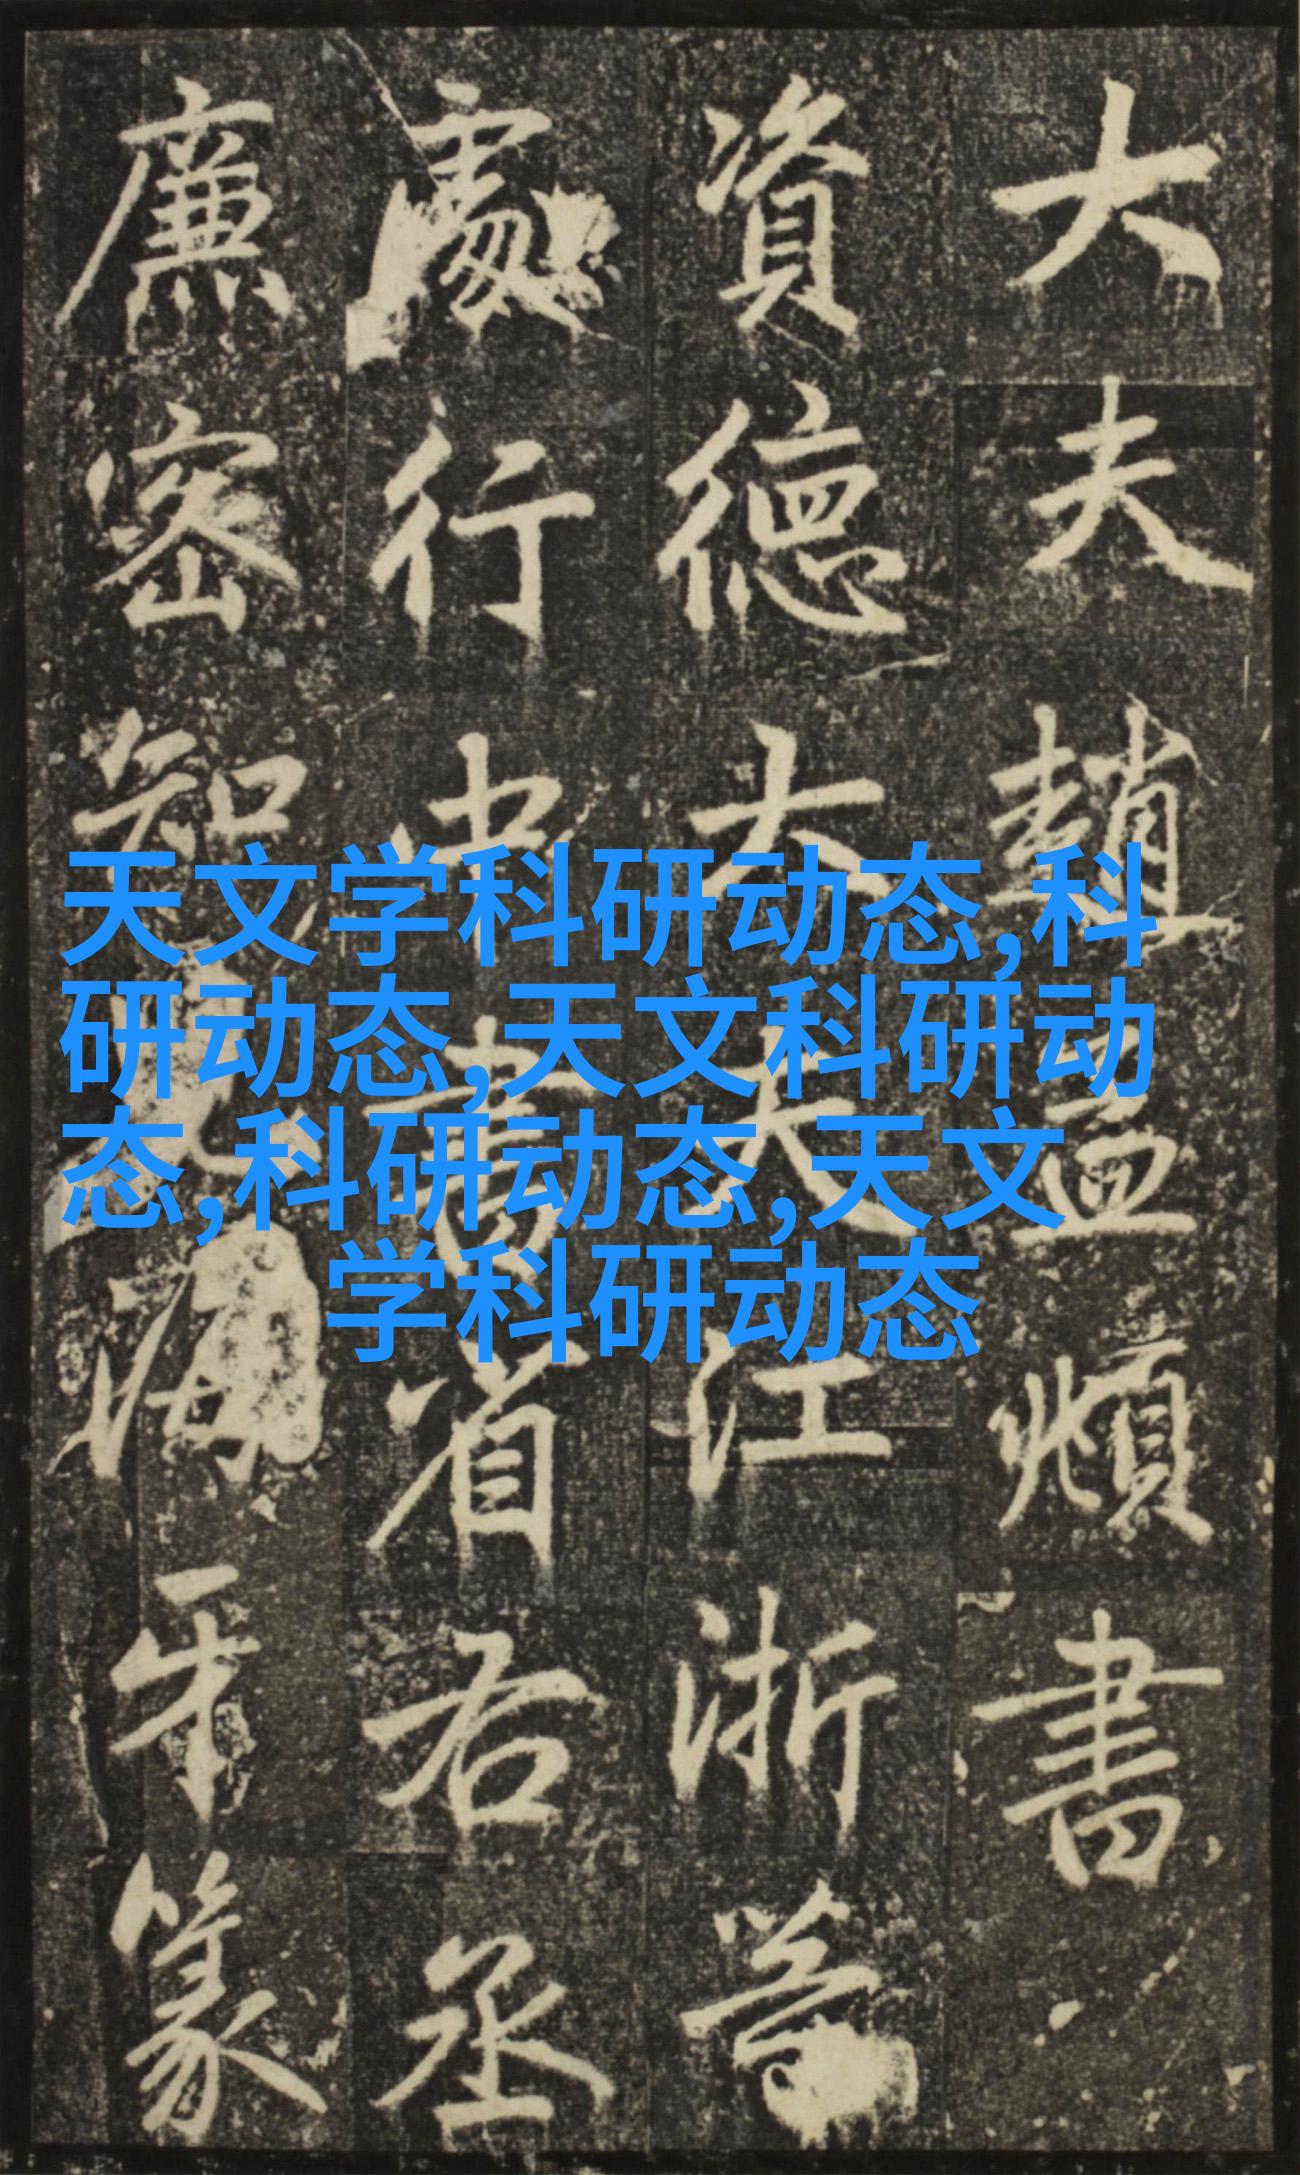 大夫趙孟頫書
資德大夫江浙等
處行中書省右丞
廉密知兒海牙篆
天文学科研动态,科
研动态,天文科研动
态,科研动态,天文
学科研动态